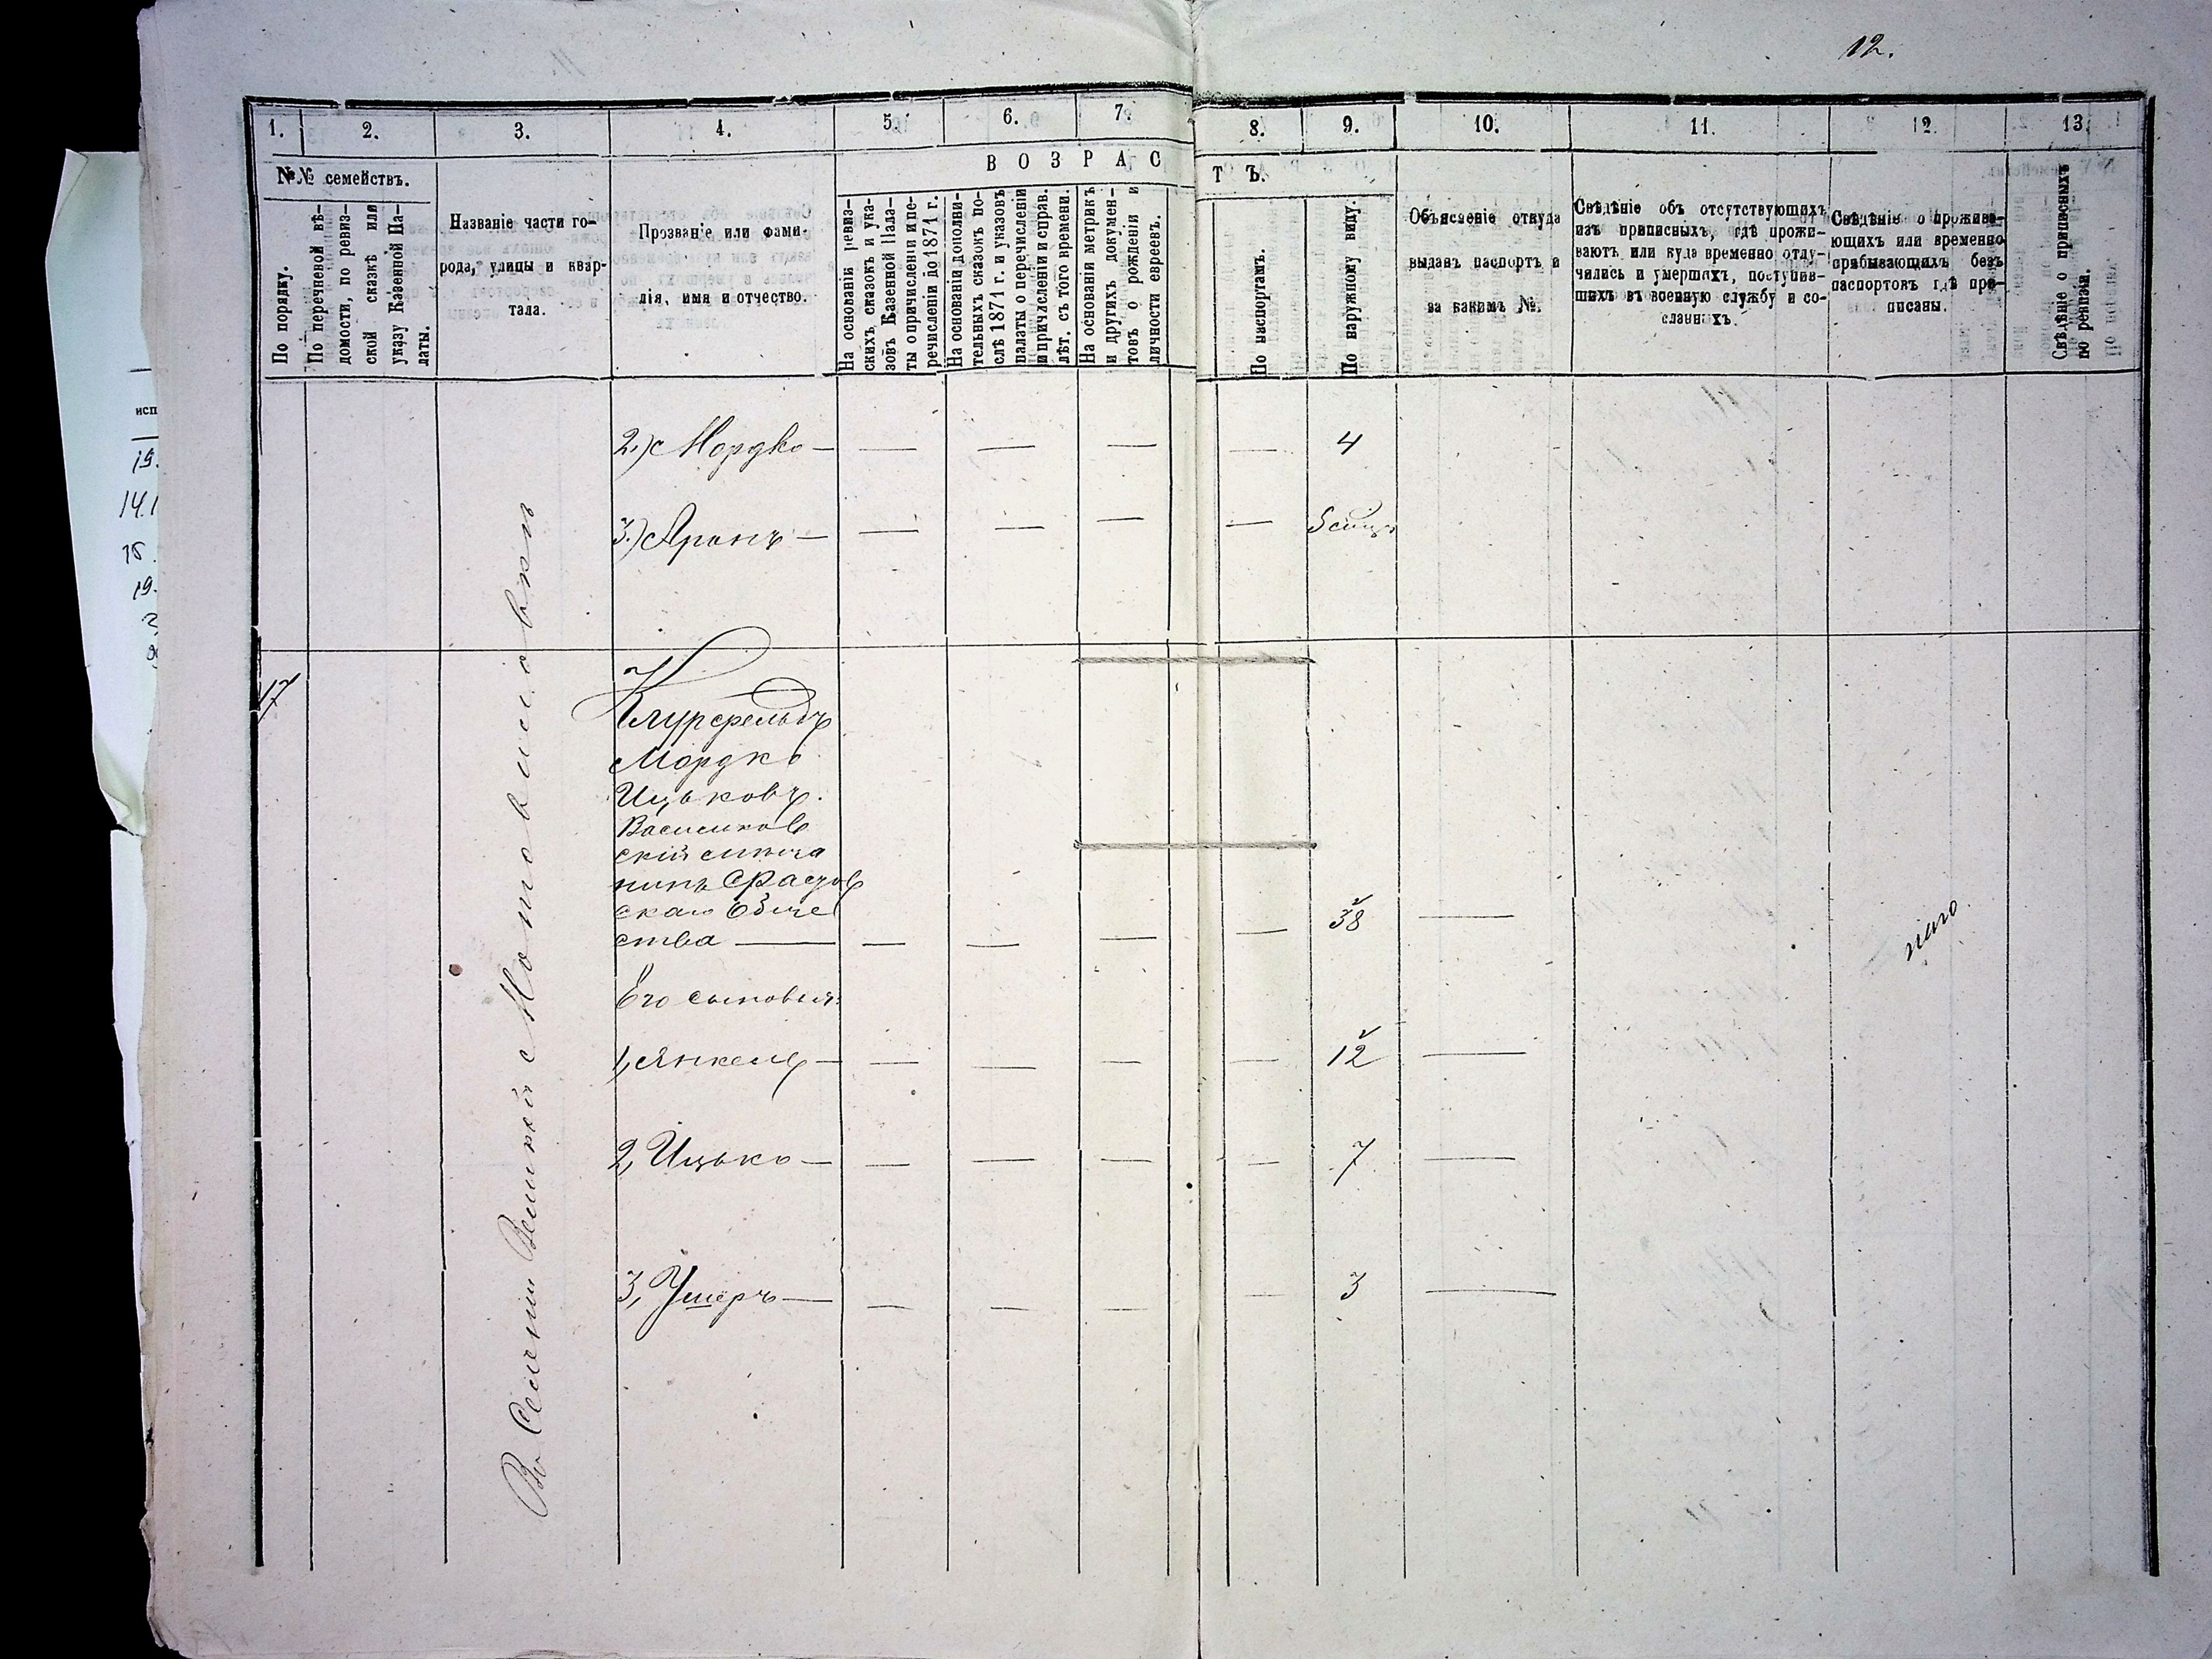 12.
1.
2.
3.
4.
5.
6.
7.
8.
9.
10.
11.
12.
13.
№№ семействъ.
По порядку.
По перечневой вѣ-
домости, по ревиз-
ской сказкѣ или
указу Казенной Па-
латы.
Названіе части го-
рода, улицы и квар-
тала.
Прозваніе или фами-
лія, имя и отчество.
ВОЗРАС
ТЪ.
На основаніи ревиз-
скихъ сказокъ и ука-
зовъ Казенной Пала-
ты о причисленіи и пе-
речисленіи до 1871 г.
На основаніи дополни-
тельныхъ сказокъ по-
слѣ 1871 г. и указовъ
палаты о перечисленіи
и причисленіи и справ.
лѣт. съ того времени.
На основаніи метрикъ
и другихъ докумен-
товъ о рожденіи и
личности евреевъ.
По паспортамъ.
По наружному виду.
Объясненіе откуда
выданъ паспортъ и
за какимъ №.
Свѣдѣніе объ отсутствующихъ
изъ приписныхъ, гдѣ прожи-
ваютъ или куда временно отлу-
чились и умершихъ, поступив-
шихъ въ военную службу и со-
сланныхъ.
Свѣдѣнія о прожива-
ющихъ или временно
прибывающихъ безъ
паспортовъ гдѣ при-
писаны.
Свѣдѣніе о приписныхъ
по ревизіи.
2.) Мордко — — — — — 4
3.) Аронъ — — — — —
17
Мордко
Ицьковъ.
Васильков
скій мѣща
нинъ Фастов
скаго Обще
ства — — — — — 38 —
Его сыновья:
1, Янкель — — — — — 12 —
2, Ицько — — — — — 7 —
3, Ушеръ — — — — — 3 —
исп
19.
14.1
19.